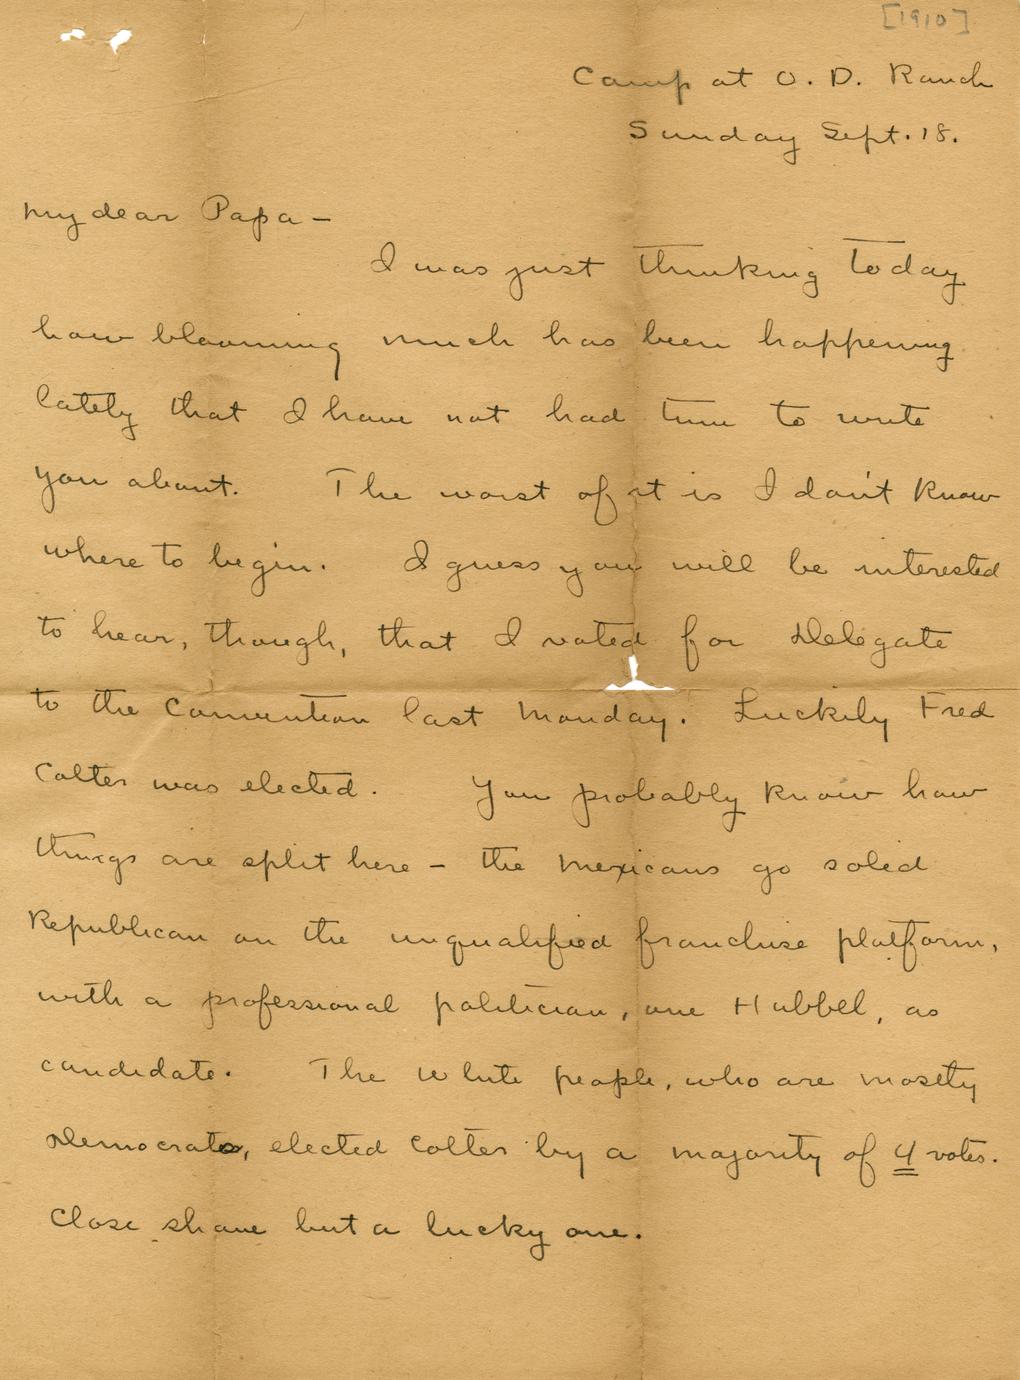 [1910]
Camp at O. D. Ranch
Sunday Sept. 18.
My dear Papa —
I was just thinking today
how blooming much has been happening
lately that I have not had time to write
you about. The worst of it is I don't know
where to begin. I guess you will be interested
to hear, though, that I voted for Delegate
to the Convention last Monday. Luckily Fred
Colter was elected. You probably know how
things are split here — the Mexicans go solid
Republican on the unqualified franchise platform,
with a professional politician, one Hubbel, as
candidate. The white people, who are mostly
Democrats, elected Colter by a majority of 4 votes.
Close shave but a lucky one.